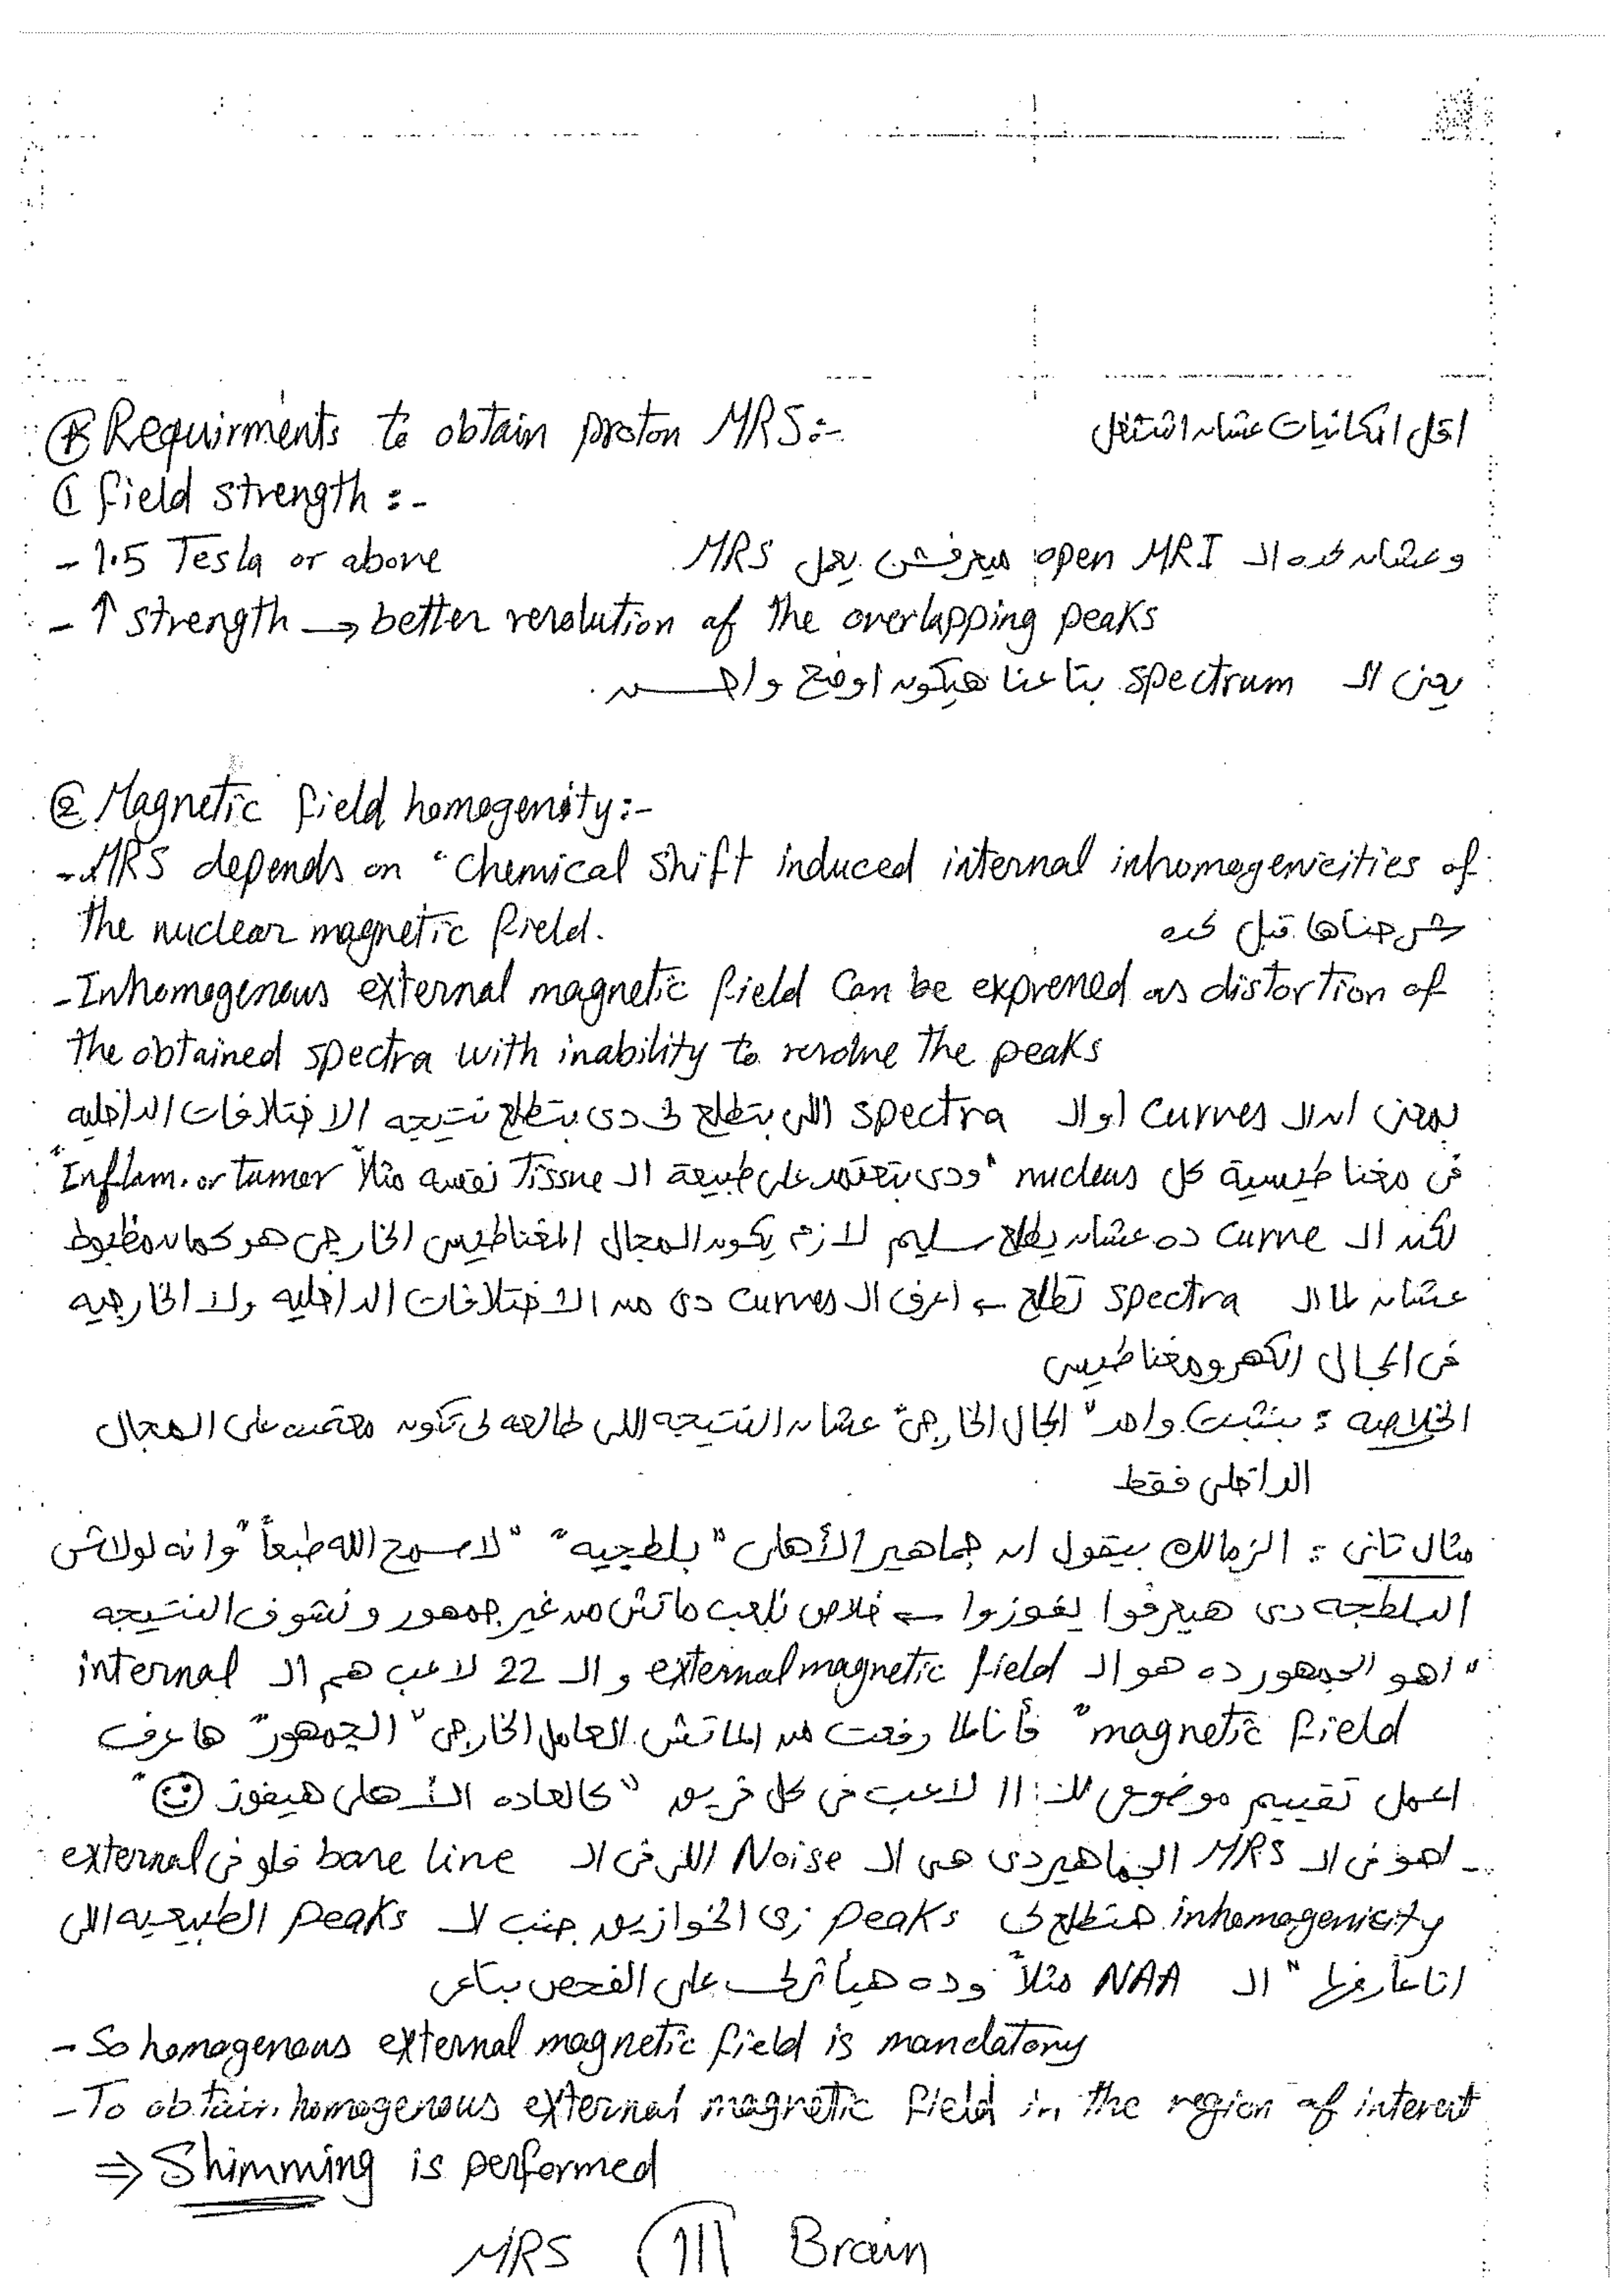 * Requirments to obtain proton MRS:- اقل امكانيات عشان اشتغل
① field strength :-
- 1.5 Tesla or above وعشان كده ال open MRI ميعرفش يعمل MRS.
- ↑ strength → better resolution of the overlapping peaks
يعنى ال spectrum بتاعنا هيكون اوضح واحسن.
② Magnetic field homogenity:-
- MRS depends on "Chemical shift induced internal inhomogenicities of
the nuclear magnetic field. شرحناها قبل كده
- Inhomogenous external magnetic field can be expressed as distortion of
the obtained spectra with inability to resolve the peaks
بمعنى ان ال curves او ال spectra اللى بتطلع لى دى بتطلع نتيجه الاختلافات الداخليه
فى مغناطيسية كل nucleus "ودى بتعتمد على طبيعة ال Tissue نفسه مثلاً "Inflam. or tumor"
لكن ال curve ده عشان يطلع سليم لازم يكون المجال المغناطيسى الخارجى هو كمان مظبوط
عشان لما ال spectra تطلع ← اعرف ال curves دى من الاختلافات الداخليه ولا الخارجيه
فى المجال الكهرومغناطيسى
الخلاصه : بنثبت واحد "المجال الخارجى" عشان النتيجه اللى طالعه لى تكون معتمده على المجال
الداخلى فقط
مثال تانى : الزمالك بيقول ان جماهير الأهلى "بلطجيه" "لا سمح الله طبعاً" وانه لولاش
البلطجه دى هيعرفوا يفوزوا ← خلاص نلعب ماتش من غير جمهور ونشوف النتيجه
"اهو الجمهور ده هو ال external magnetic field و ال 22 لاعب هم ال internal
magnetic field" فأنا لما رفعت من الماتش العامل الخارجى "الجمهور" هاعرف
اعمل تقييم موضوعى لل 11 لاعب فى كل فريق "كالعاده الأهلى هيفوز ☺"
- اهو فى ال MRS الجماهير دى هى ال Noise اللى فى ال base line فلو فى external
inhomogenicity هتطلع لى peaks زى الخوازيق جنب ال peaks الطبيعيه اللى
انا عارفها "ال NAA مثلاً" وده هيأثر لى على الفحص بتاعى
- So homogenous external magnetic field is mandatory
- To obtain homogenous external magnetic field in the region of interest
⇒ Shimming is performed
MRS 111 Brain